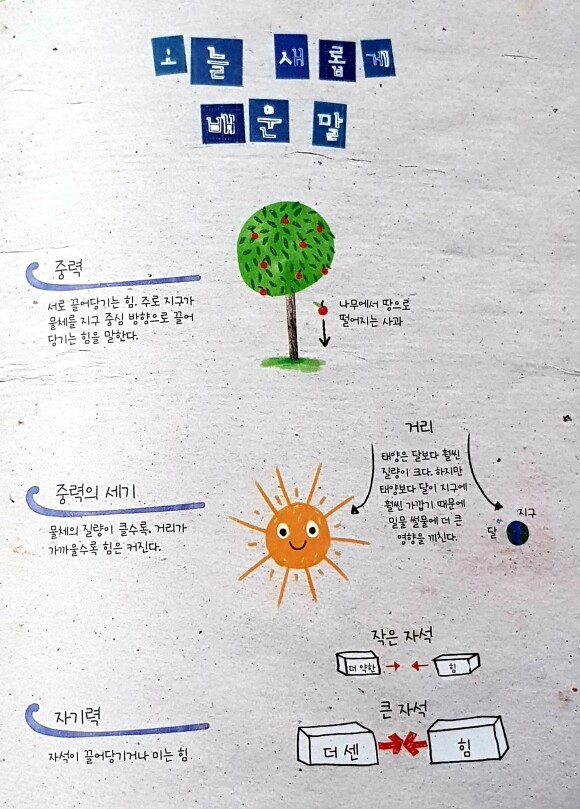 오늘 새롭게
배운 말
중력
서로 끌어당기는 힘. 주로 지구가
물체를 지구 중심 방향으로 끌어
당기는 힘을 말한다.
나무에서 땅으로
떨어지는 사과
중력의 세기
물체의 질량이 클수록, 거리가
가까울수록 힘은 커진다.
거리
태양은 달보다 훨씬
질량이 크다. 하지만
태양보다 달이 지구에
훨씬 가깝기 때문에
밀물 썰물에 더 큰
영향을 끼친다.
지구
달
자기력
자석이 끌어당기거나 미는 힘
작은 자석
더 약한 힘
큰 자석
더 센 힘